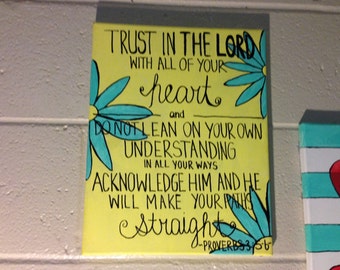 TRUST IN THE LORD
WITH ALL OF YOUR
heart
and
DO NOT LEAN ON YOUR OWN
UNDERSTANDING
IN ALL YOUR WAYS
ACKNOWLEDGE HIM AND HE
WILL MAKE YOUR PATHS
straight
-PROVERBS 3:5-6